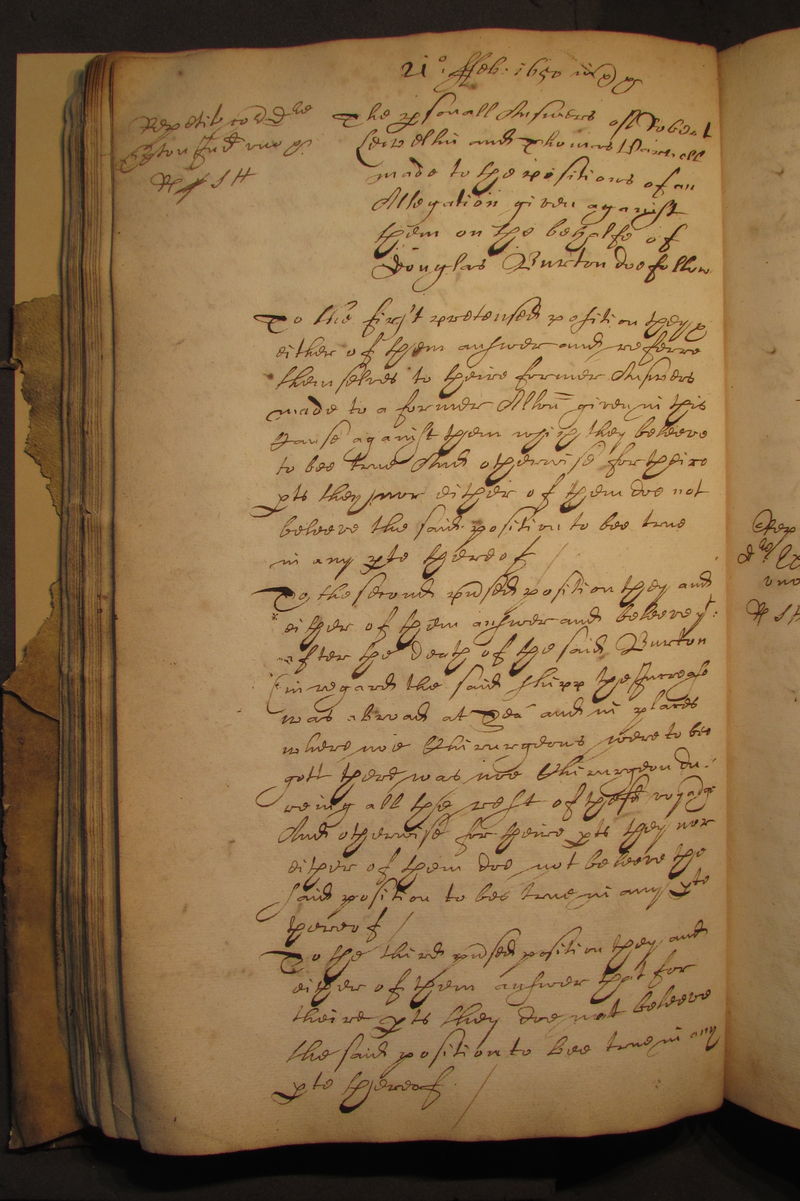 21o: ffeb: 1650
Repetit cor d
The psonall Answers of Robert
Lewellin and Thomas
made to the positions of an
Allegation given against
them on the behalfe of
Douglas Burton doe follow
To the first pretensed position they
either of them answer and referre
themselves to theire former Answers
made to a former Allon given in this
Cause against them which they beleeve
to bee true And otherwise for theire
pts they nor either of them doe not
beleeve the said position to bee true
in any pte thereof /
To the second pnsed position they and
either of them answer and beleeve yt:
after the death of the said Burton
(in regard the said shipp the Increase
was abroad at Sea and in places
where noe Chirurgeons were to bee
gott there was noe Chirurgeon du:
reing all the rest of these voyadge
And otherwise for theire pts they nor
either of them doe not beleeve the
said position to bee true in any pte
thereof /
To the third pnsed position they and
either of them answer that for
theire pts they doe not beleeve
the said position to bee true in any
pte thereof /